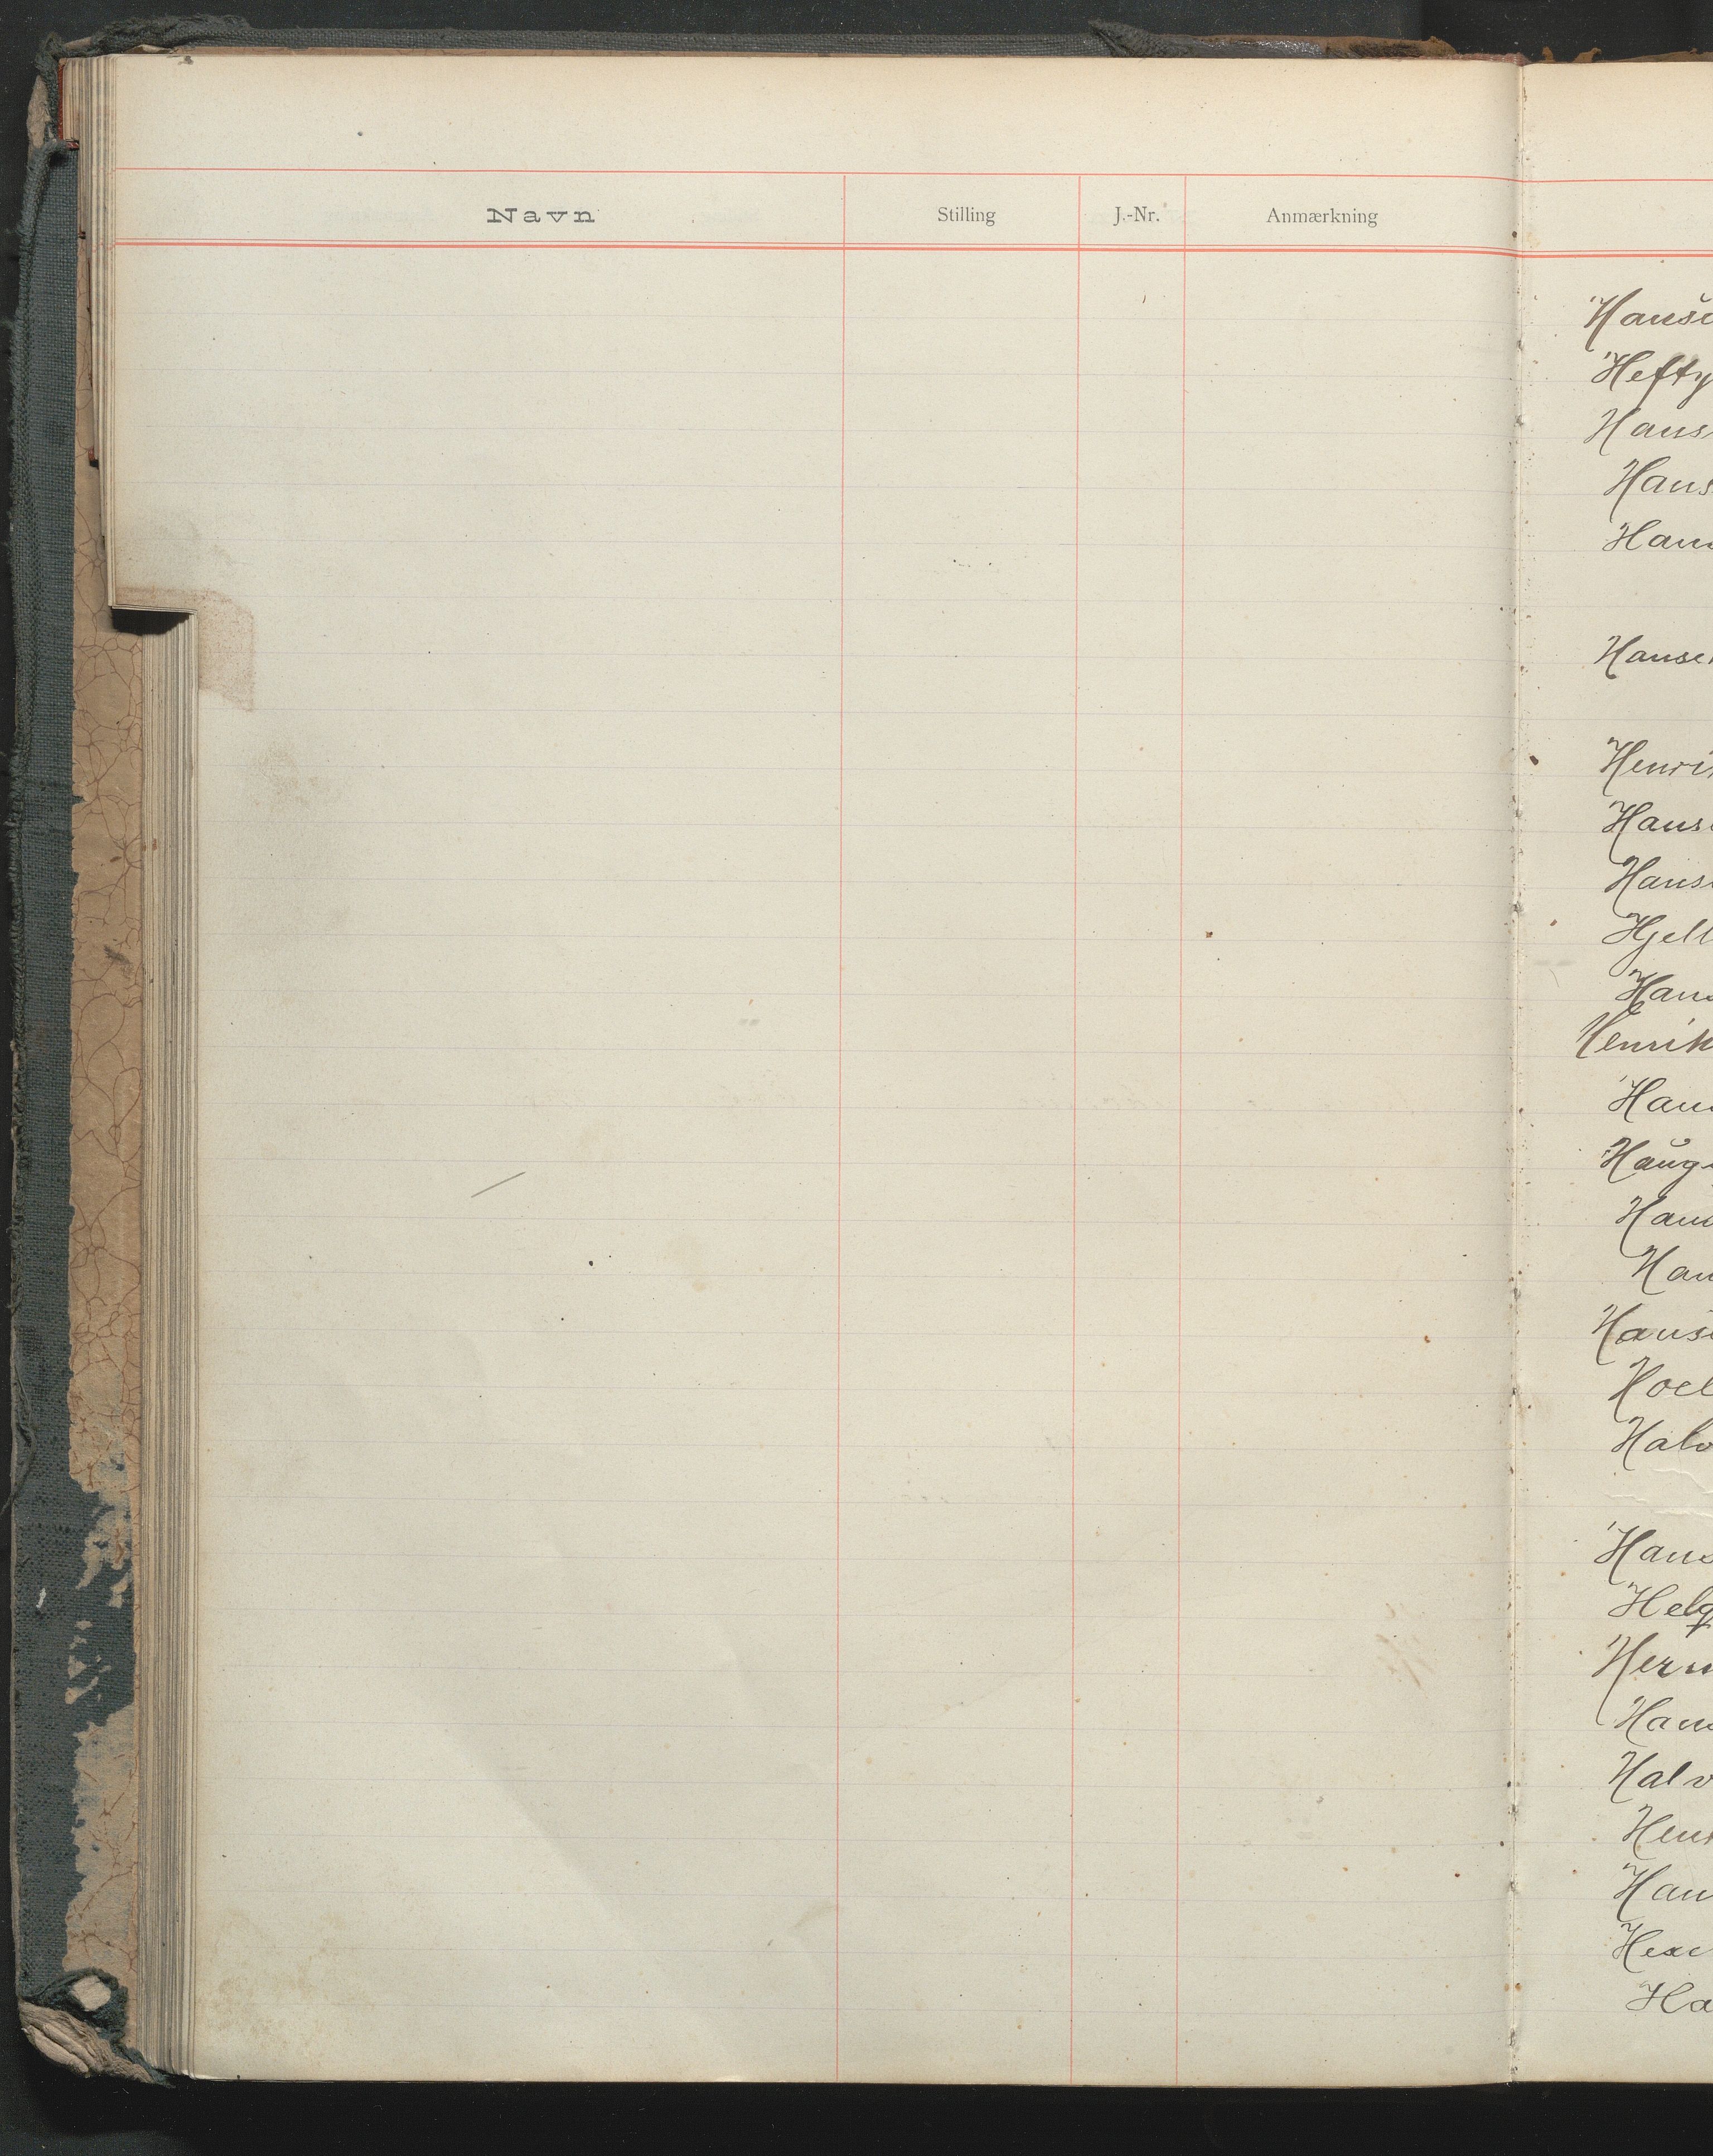 Navn Stilling J.-Nr. Anmærkning
Hanse
Hefty
Hans
Hans
Han
Hansen
Henrik
Hans
Hans
Hjell
Han
Henrik
Han
Haug
Han
Han
Hanse
Hoel
Halv
Hans
Helg
Herm
Han
Halv
Hen
Han
Ha